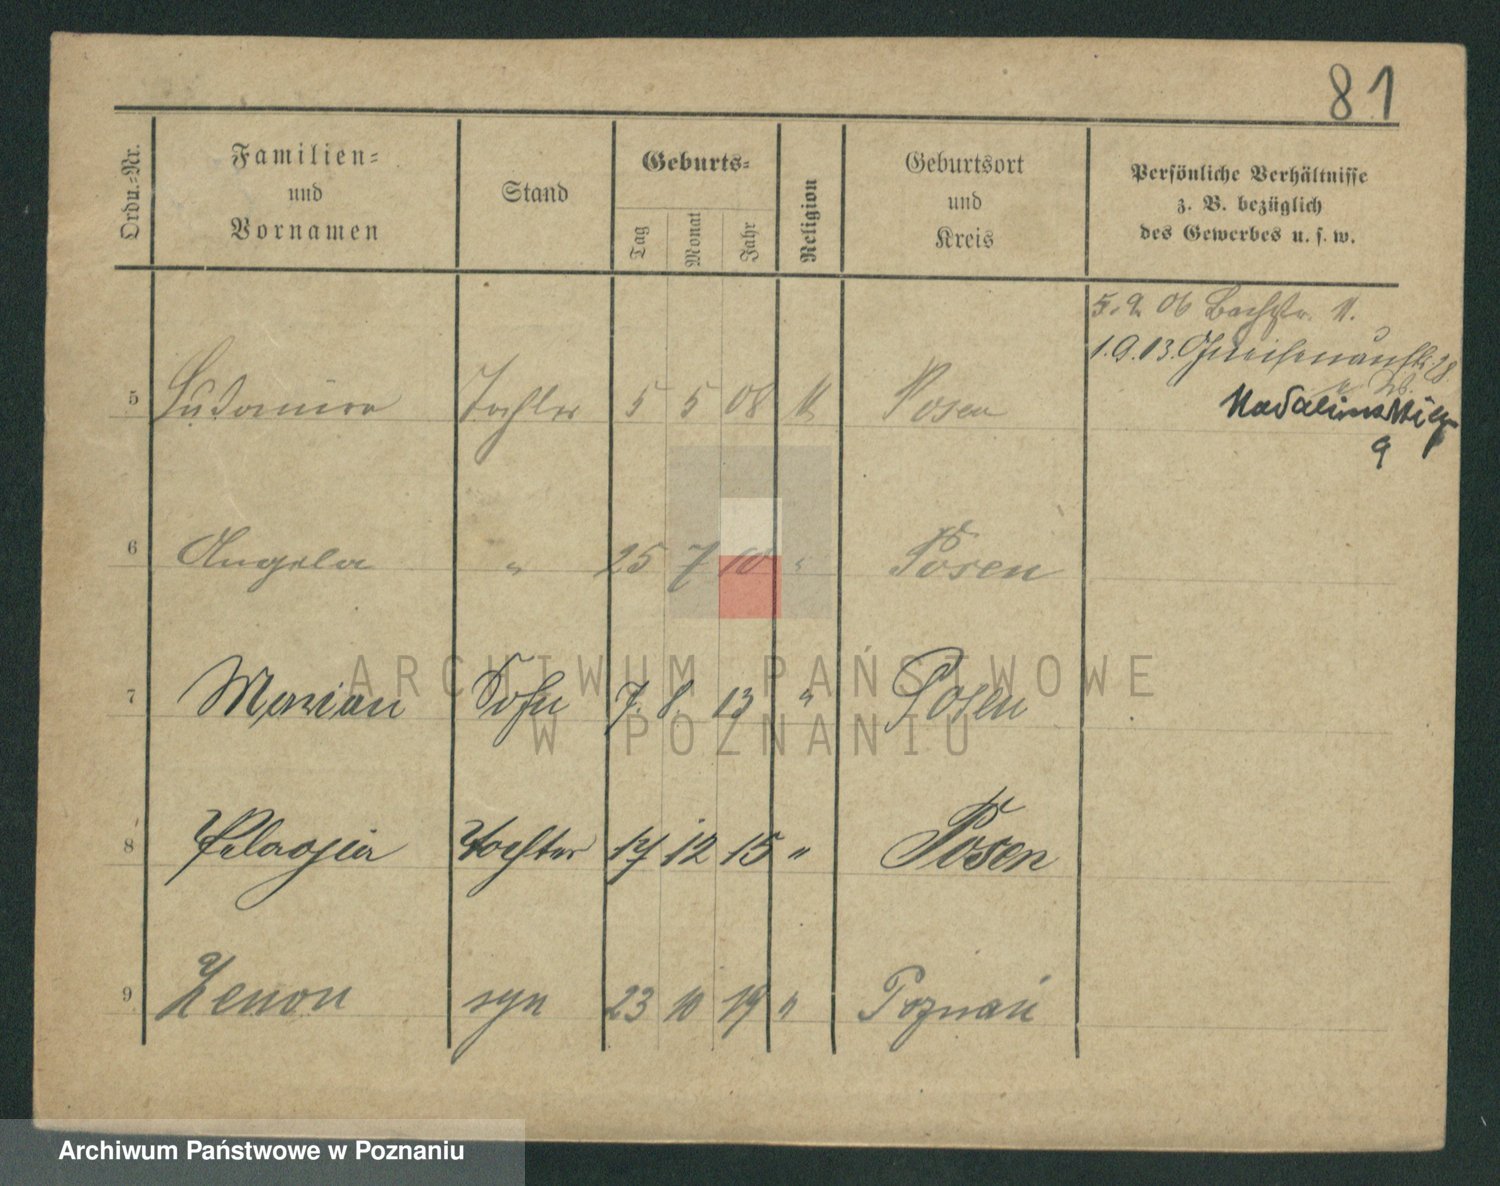 81
Ordn.-Nr.
Familien-
und
Vornamen
Stand
Geburts-
Tag
Monat
Jahr
Religion
Geburtsort
und
Kreis
Persönliche Verhältnisse
z. B. bezüglich
des Gewerbes u. s. w.
5. 9. 06 Bachstr. 11.
1. 9. 13. Gneisenaustr. 28.
5 Ludomira Tochter 5 5 08 Posen
9
6 Angela " 25 7 10 " Posen
7 Marian Sohn 7. 8. 13 " Posen
8 Pelagia Tochter 17 12 15 " Posen
9 Zenon syn 23 10 19 " Poznań
ARCHIWUM PAŃSTWOWE
W POZNANIU
Archiwum Państwowe w Poznaniu